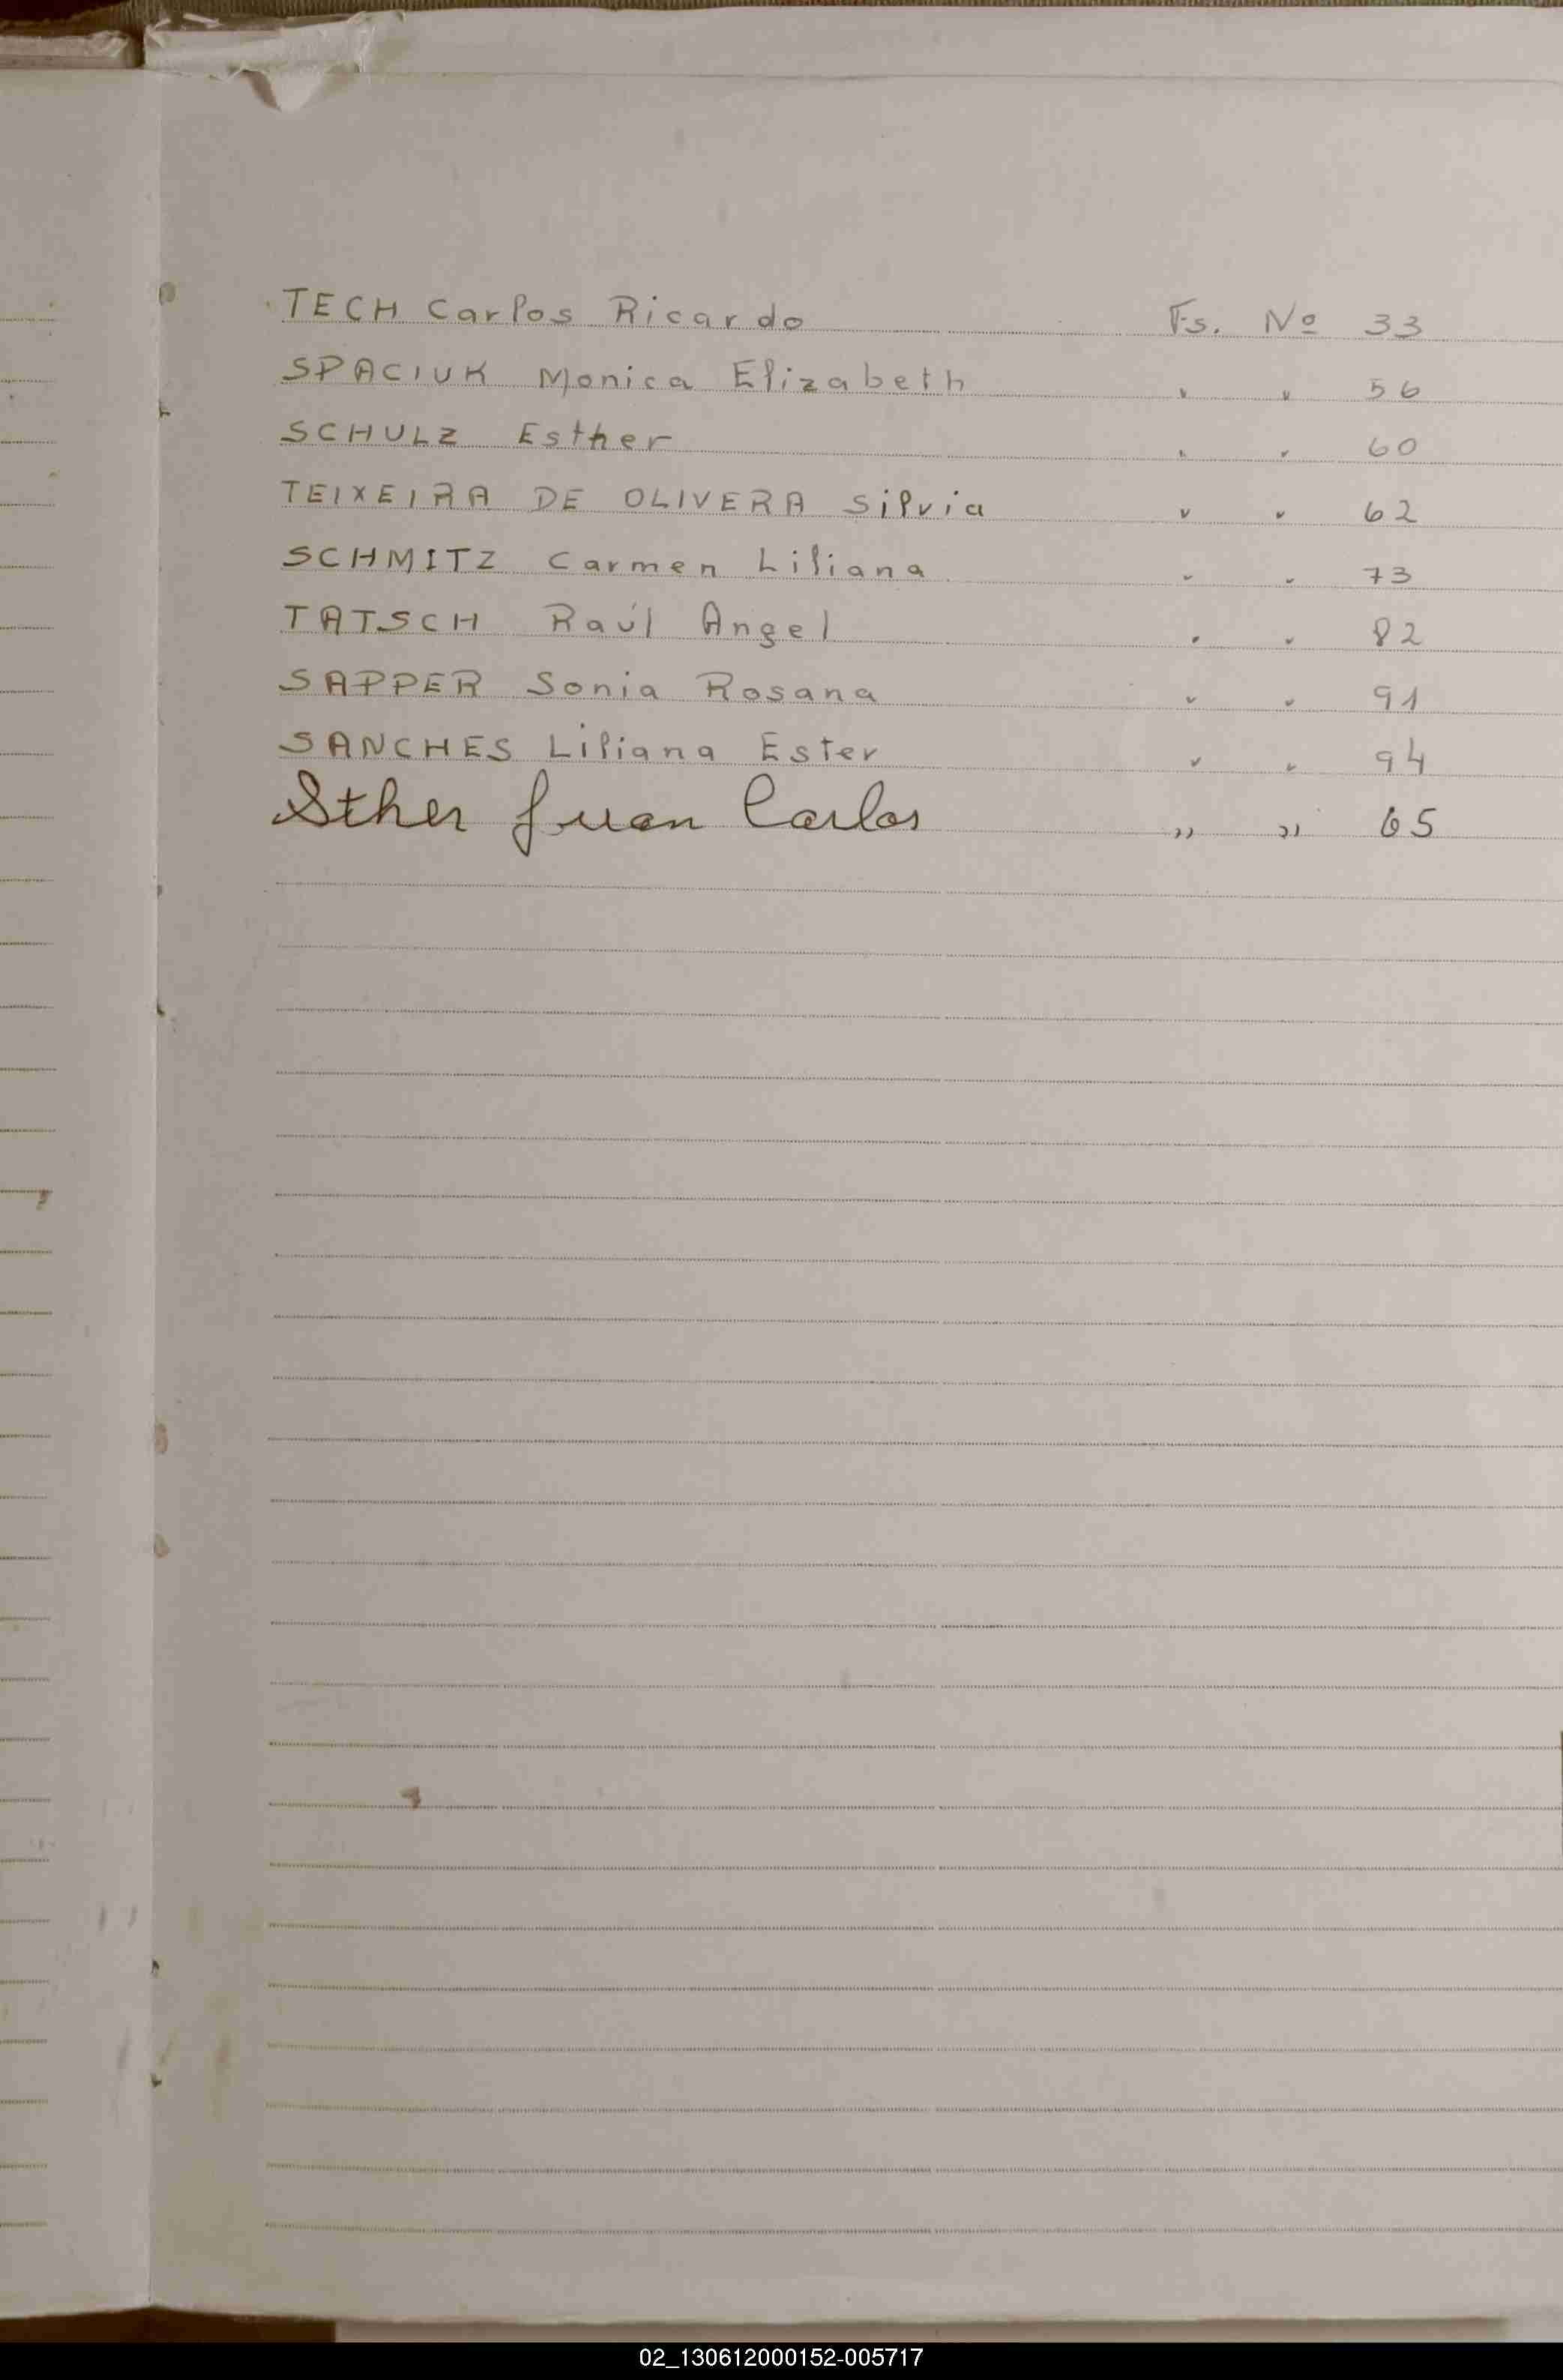 TECH Carlos Ricardo Fs. Nº 33
SPACIUK Monica Elizabeth " " 56
SCHULZ Esther " " 60
TEIXEIRA DE OLIVERA Silvia " " 62
SCHMITZ Carmen Liliana " " 73
TATSCH Raúl Angel " " 82
SAPPER Sonia Rosana " " 91
SANCHES Liliana Ester " " 94
Sther Juan Carlos " " 65
02_130612000152-005717